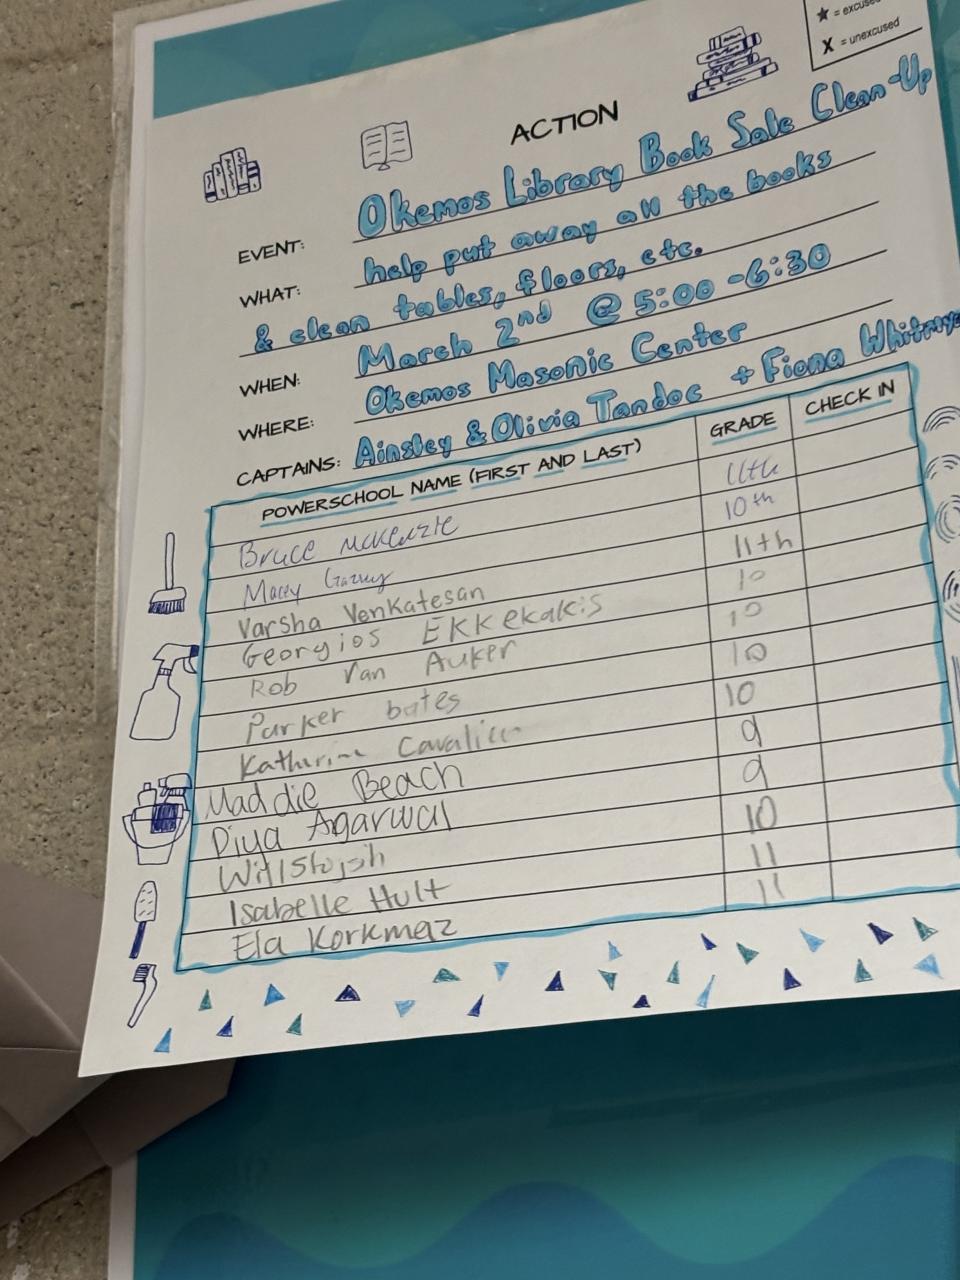 ★ = excused
X = unexcused
ACTION
EVENT: Okemos Library Book Sale Clean-Up
WHAT: help put away all the books
& clean tables, floors, etc.
WHEN: March 2nd @ 5:00-6:30
WHERE: Okemos Masonic Center
CAPTAINS: Ainsley & Olivia Tandoc + Fiona Whitmye
POWERSCHOOL NAME (FIRST AND LAST) GRADE CHECK IN
Bruce McKenzie 11th
Macy 10th
Varsha Venkatesan 11th
Georgios Ekkekakis 10
Rob Van Auker 10
Parker bates 10
Katherine 10
Maddie Beach 9
Diya Agarwal 9
Will 10
Isabelle Hult 11
Ela Korkmaz 11